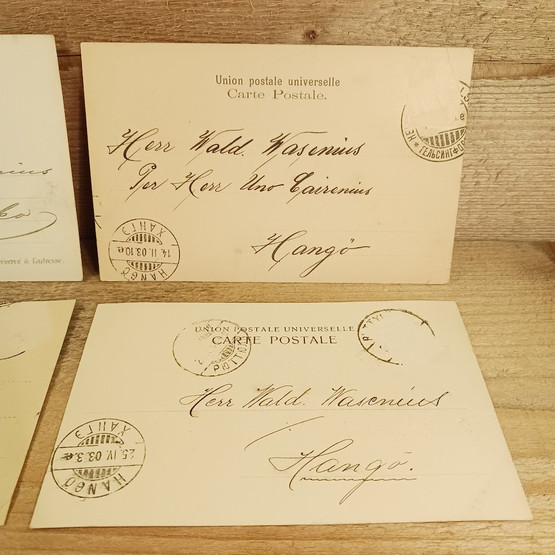 Union postale universelle
Carte Postale.
Herr Wald. Wasenius
Per Herr Uno Cairenius
Hangö
ГЕЛЬСИНГФО
ХАНГЭ
14. II. 03. 10 e.
HANGÖ
UNION POSTALE UNIVERSELLE
CARTE POSTALE
Herr Wald. Wasenius
Hangö.
ХАНГЭ
25. IV. 03. 3. e.
HANGÖ